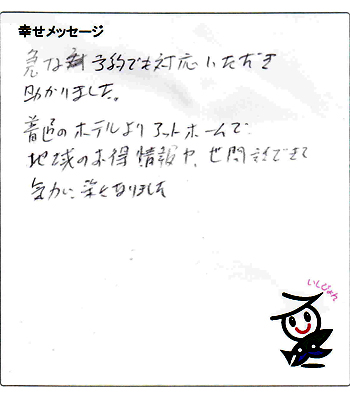 幸せメッセージ
急な予約でも対応いただき
助かりました。
普通のホテルよりアットホームで
地域のお得情報や、世間話できて
気分に楽になりました
いしぴょん